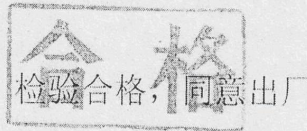 合格
检验合格，同意出厂